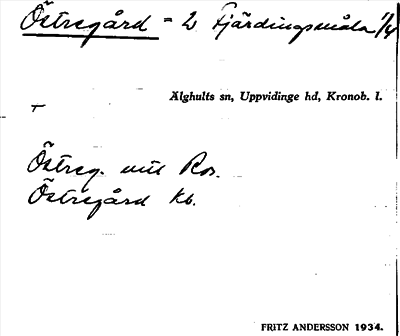 Östregård - 2 Fjärdingsmåla 1/4
Älghults sn, Uppvidinge hd, Kronob. l.
Östreg. uttl Ros.
Östregård Kb.
FRITZ ANDERSSON 1934.